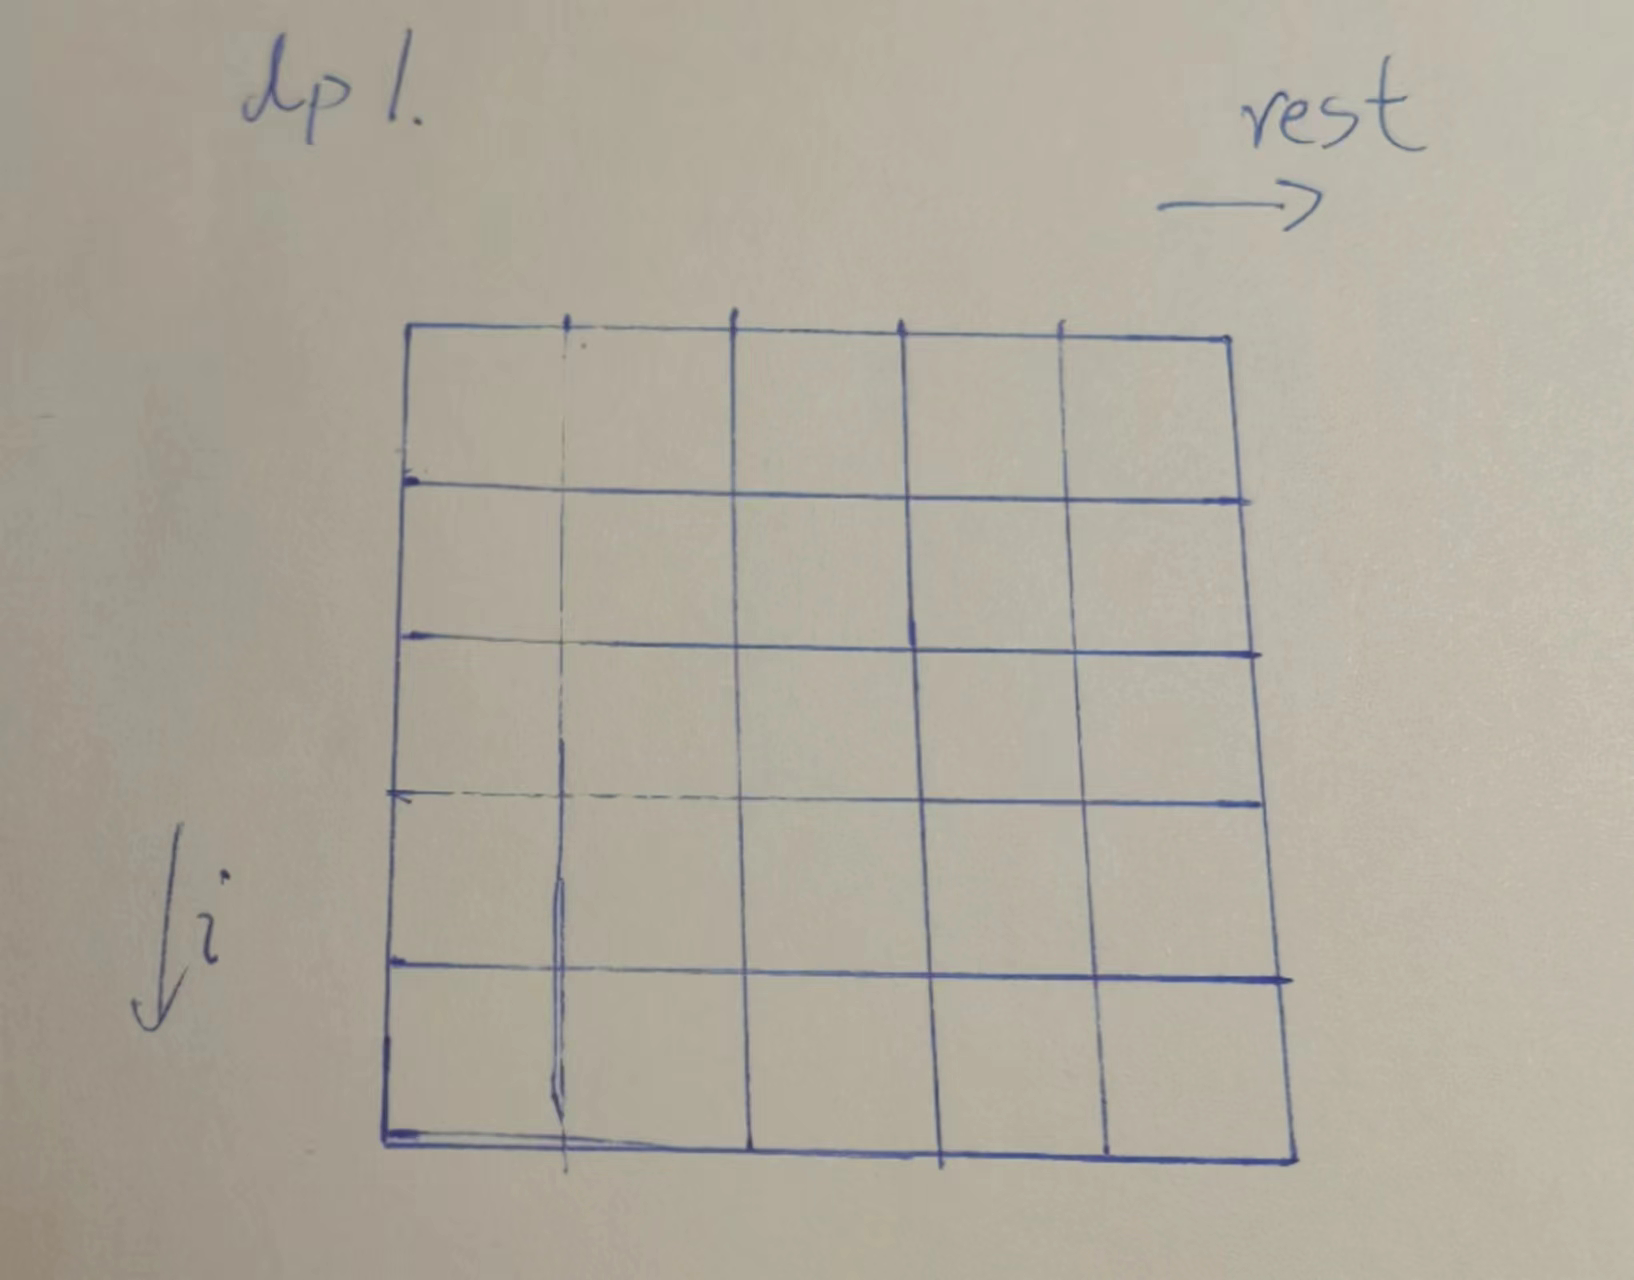 dp1.
rest
i